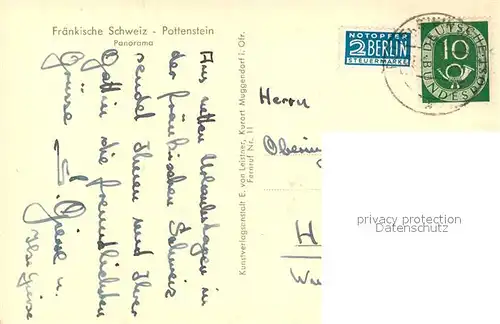 Fränkische Schweiz - Pottenstein
Panorama
Aus netten Urlaubstagen in
der fränkischen Schweiz
sendet Ihnen und Ihrer
Gattin die freundlichsten
Grüsse
Giese u.
Ilse Giese
Kunstverlagsanstalt E. von Leistner, Kurort Muggendorf i. Ofr.
Fernruf Nr. 11
NOTOPFER
2 BERLIN
STEUERMARKE
DEUTSCHE
BUNDESPOST
10
Herrn
privacy protection
www.oldthing.de
H